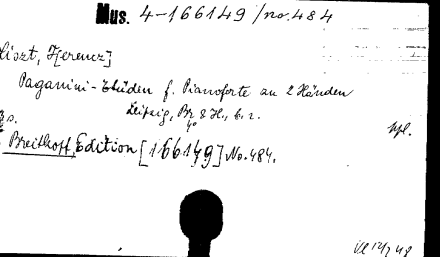 Mus. 4-166149/no.484
Liszt, F[erenc]
Paganini-Etüden f. Pianoforte zu 2 Händen
Leipzig, Br & H., 
4°
Breitkopf, Edition [166149] No. 484.